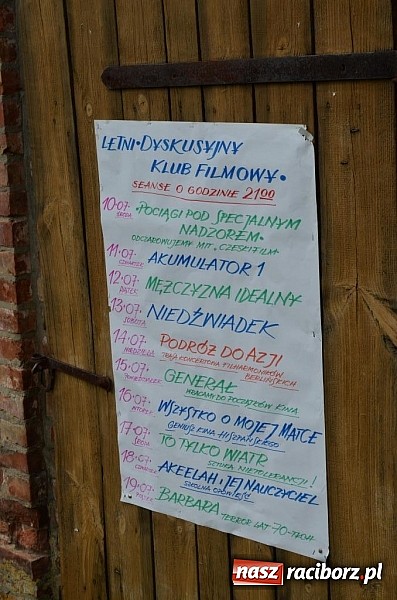 LETNI • DYSKUSYJNY
KLUB FILMOWY •
SEANSE O GODZINIE 21⁰⁰
10.07. ŚRODA • POCIĄGI POD SPECJALNYM
NADZOREM •
ODCZAROWUJEMY MIT „CZESKI FILM"
11.07. CZWARTEK AKUMULATOR 1
12.07. PIĄTEK MĘŻCZYZNA IDEALNY
13.07. SOBOTA NIEDŹWIADEK
14.07. NIEDZIELA PODRÓŻ DO AZJI
TRASA KONCERTOWA FILHARMONIKÓW
BERLIŃSKICH
15.07. PONIEDZIAŁEK GENERAŁ
WRACAMY DO POCZĄTKÓW KINA
16.07. WTOREK WSZYSTKO O MOJEJ MATCE
GENIUSZ KINA HISZPAŃSKIEGO
17.07. ŚRODA TO TYLKO WIATR
SZTUKA NIETOLERANCJI!
18.07. CZWARTEK AKEELAH I JEJ NAUCZYCIEL
SZKOLNA OPOWIEŚĆ
19.07. PIĄTEK BARBARA TERROR LAT 70-TYCH
nasz raciborz.pl